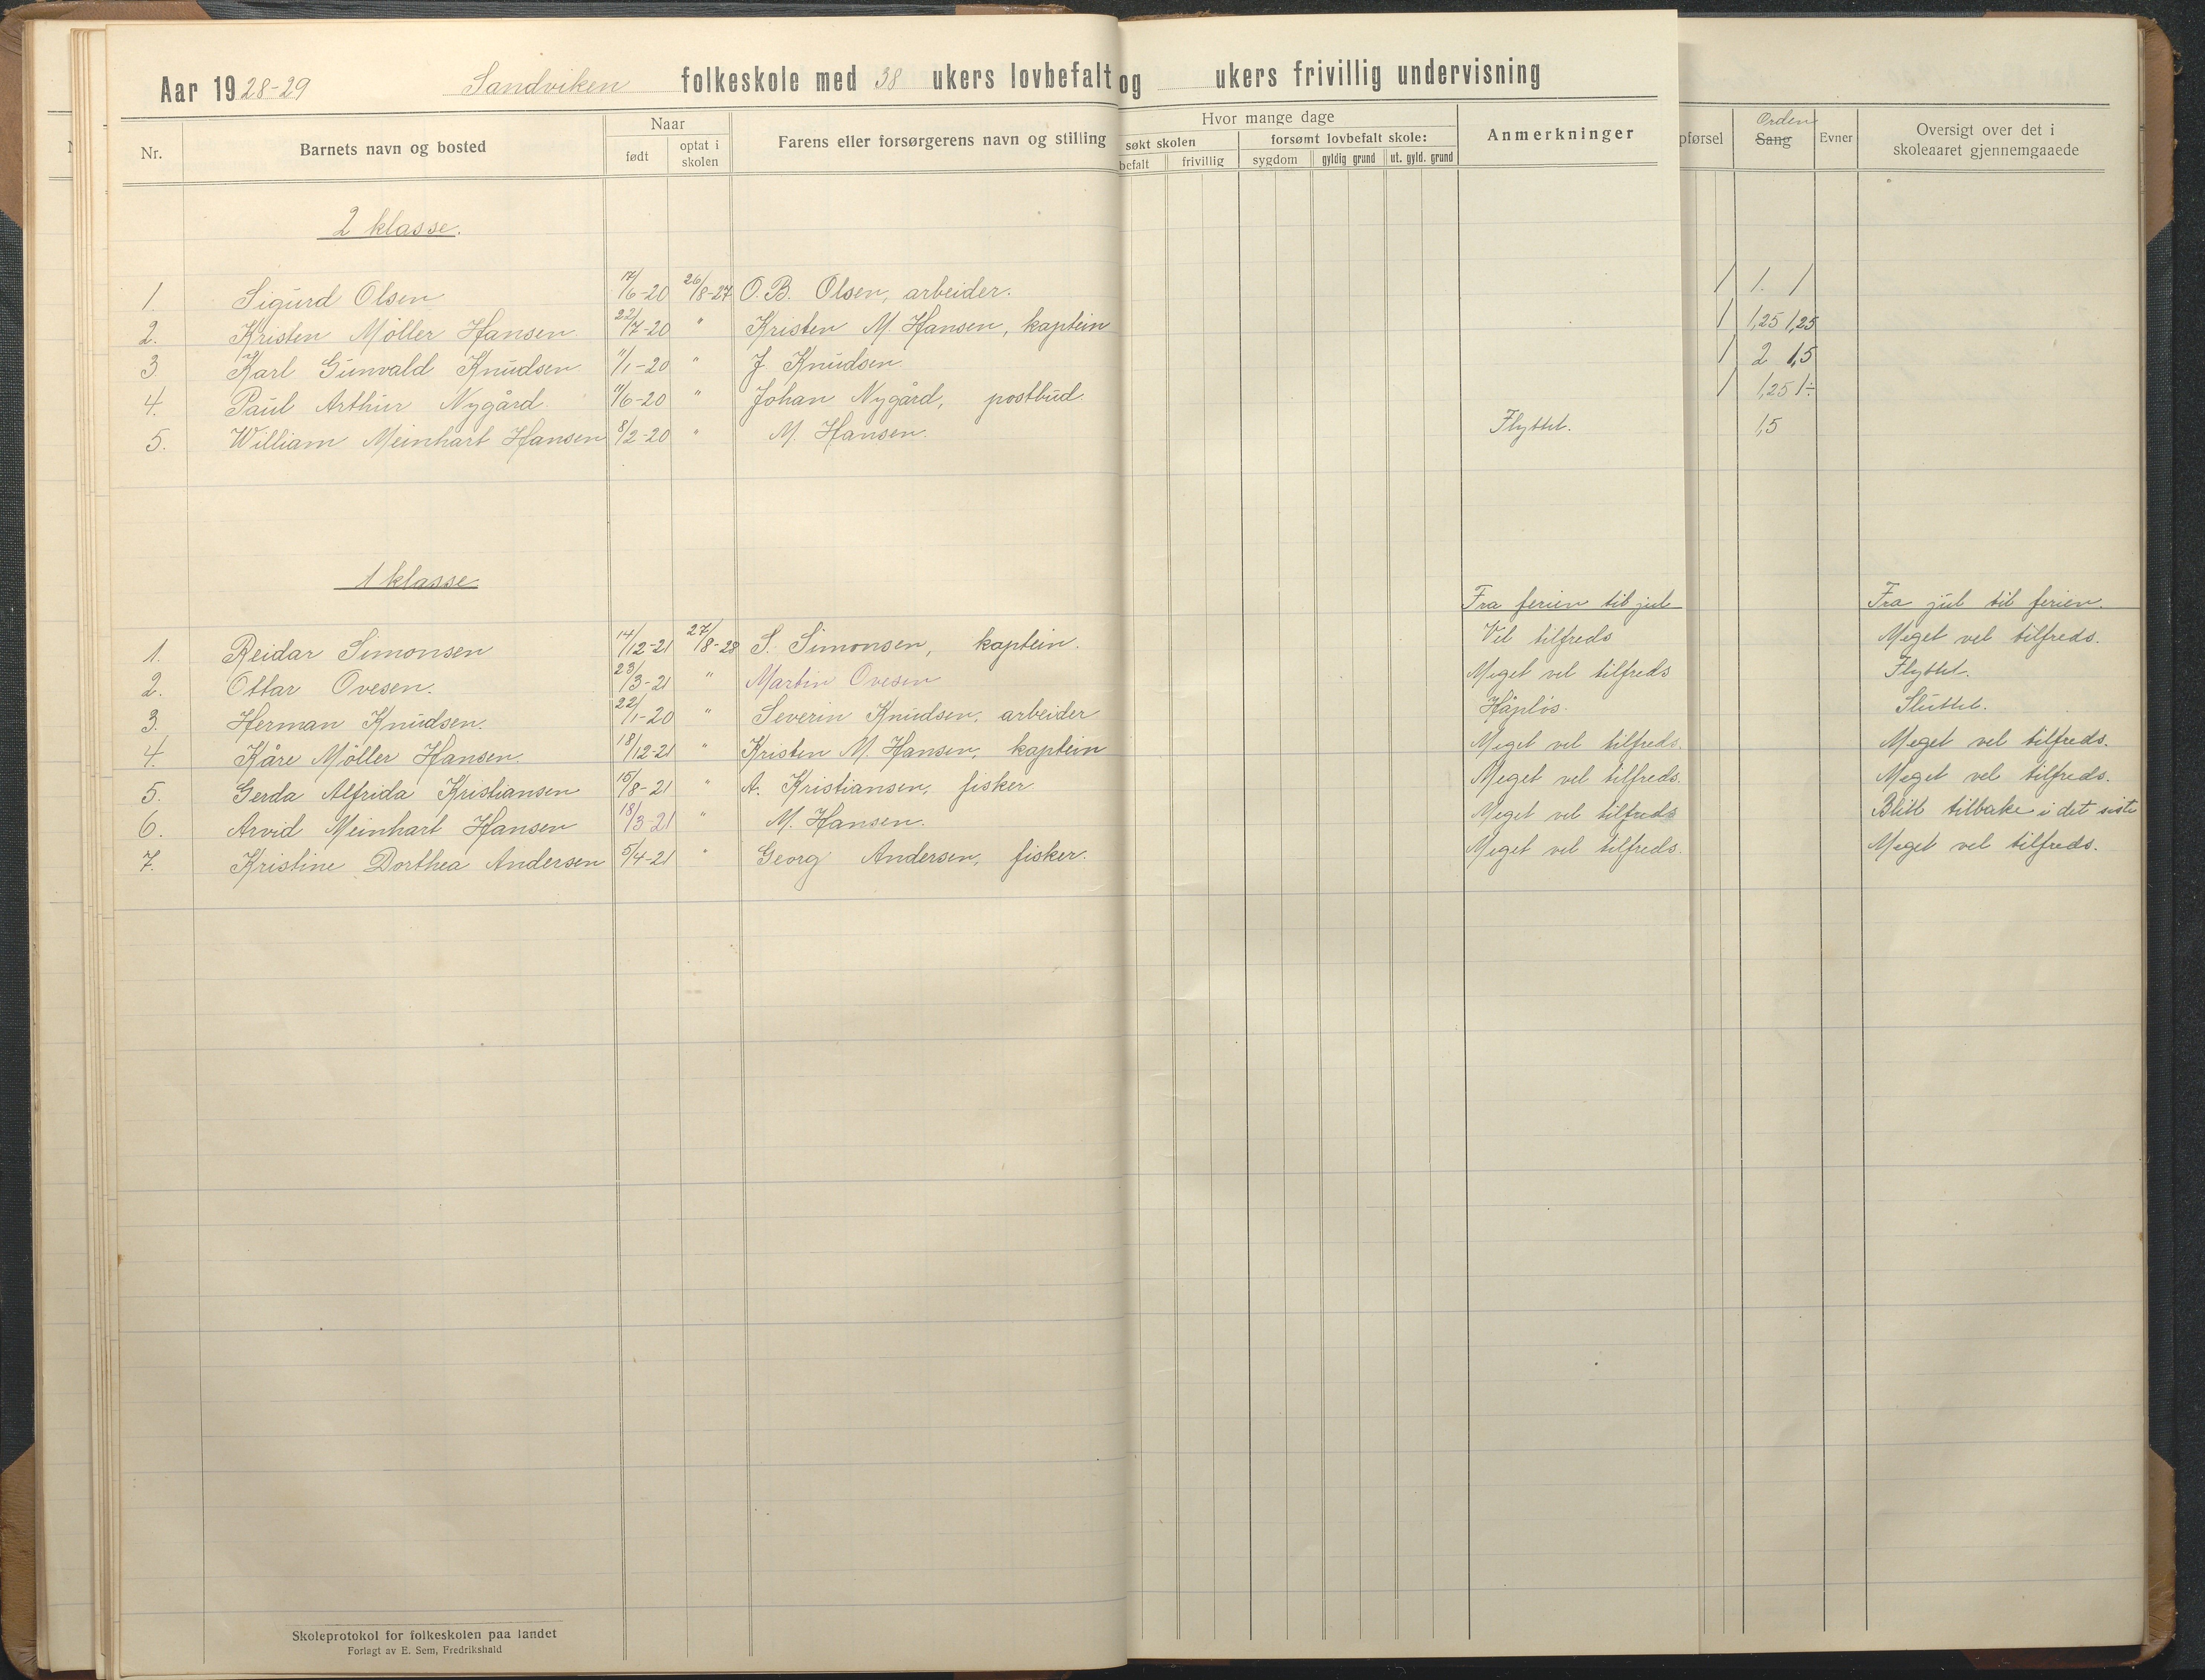 Aar 1928-29 Sandviken folkeskole med 38 ukers lovbefalt og ukers frivillig undervisning
Nr. Barnets navn og bosted Naar født optat i skolen Farens eller forsørgerens navn og stilling Hvor mange dage søkt skolen befalt frivillig forsømt lovbefalt skole: sygdom gyldig grund ut. gyld. grund Anmerkninger pførsel Orden Sang Evner Oversigt over det i skoleaaret gjennemgaaede
2 klasse.
1. Sigurd Olsen 17/6-20 26/8-27 O. B. Olsen, arbeider. 1 1. 1
2. Kristen Møller Hansen. 22/7-20 " Kristen M. Hansen, kaptein 1 1,25 1,25
3 Karl Gunvald Knudsen 1/1-20 " J Knudsen. 1 2 1,5
4. Paul Arthur Nygård 11/6-20 " Johan Nygård, postbud. 1 1,25 1÷
5. William Meinhart Hansen 8/2-20 " M. Hansen. Flyttet. 1,5
1 klasse
Fra ferien til jul Fra jul til ferien.
1. Reidar Simonsen 14/12-21 27/8-28 S. Simonsen, kaptein. Vel tilfreds Meget vel tilfreds.
2. Ottar Ovesen. 23/3-21 " Martin Ovesen Meget vel tilfreds Flyttet.
3. Herman Knudsen. 22/1-20 " Severin Knudsen, arbeider Håpløs. Sluttet.
4. Kåre Møller Hansen. 18/12-21 " Kristen M. Hansen, kaptein Meget vel tilfreds. Meget vel tilfreds.
5. Gerda Alfrida Kristiansen 15/8-21 " A. Kristiansen, fisker Meget vel tilfreds. Meget vel tilfreds.
6. Arvid Meinhart Hansen 18/3-21 " M. Hansen. Meget vel tilfreds Blitt tilbake i det siste
7. Kristine Dorthea Andersen 5/4-21 " Georg Andersen, fisker. Meget vel tilfreds. Meget vel tilfreds.
Skoleprotokol for folkeskolen paa landet
Forlagt av E. Sem, Fredrikshald